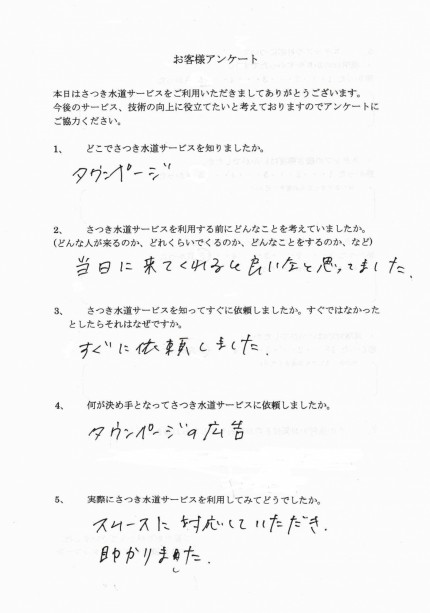 お客様アンケート
本日はさつき水道サービスをご利用いただきましてありがとうございます。
今後のサービス、技術の向上に役立てたいと考えておりますのでアンケートに
ご協力ください。
1、 どこでさつき水道サービスを知りましたか。
タウンページ
2、 さつき水道サービスを利用する前にどんなことを考えていましたか。
(どんな人が来るのか、どれくらいでくるのか、どんなことをするのか、など)
当日に来てくれると良いなと思ってました.
3、 さつき水道サービスを知ってすぐに依頼しましたか。すぐではなかった
としたらそれはなぜですか。
すぐに依頼しました.
4、 何が決め手となってさつき水道サービスに依頼しましたか。
タウンページの広告
5、 実際にさつき水道サービスを利用してみてどうでしたか。
スムーズに対応していただき.
助かりました.